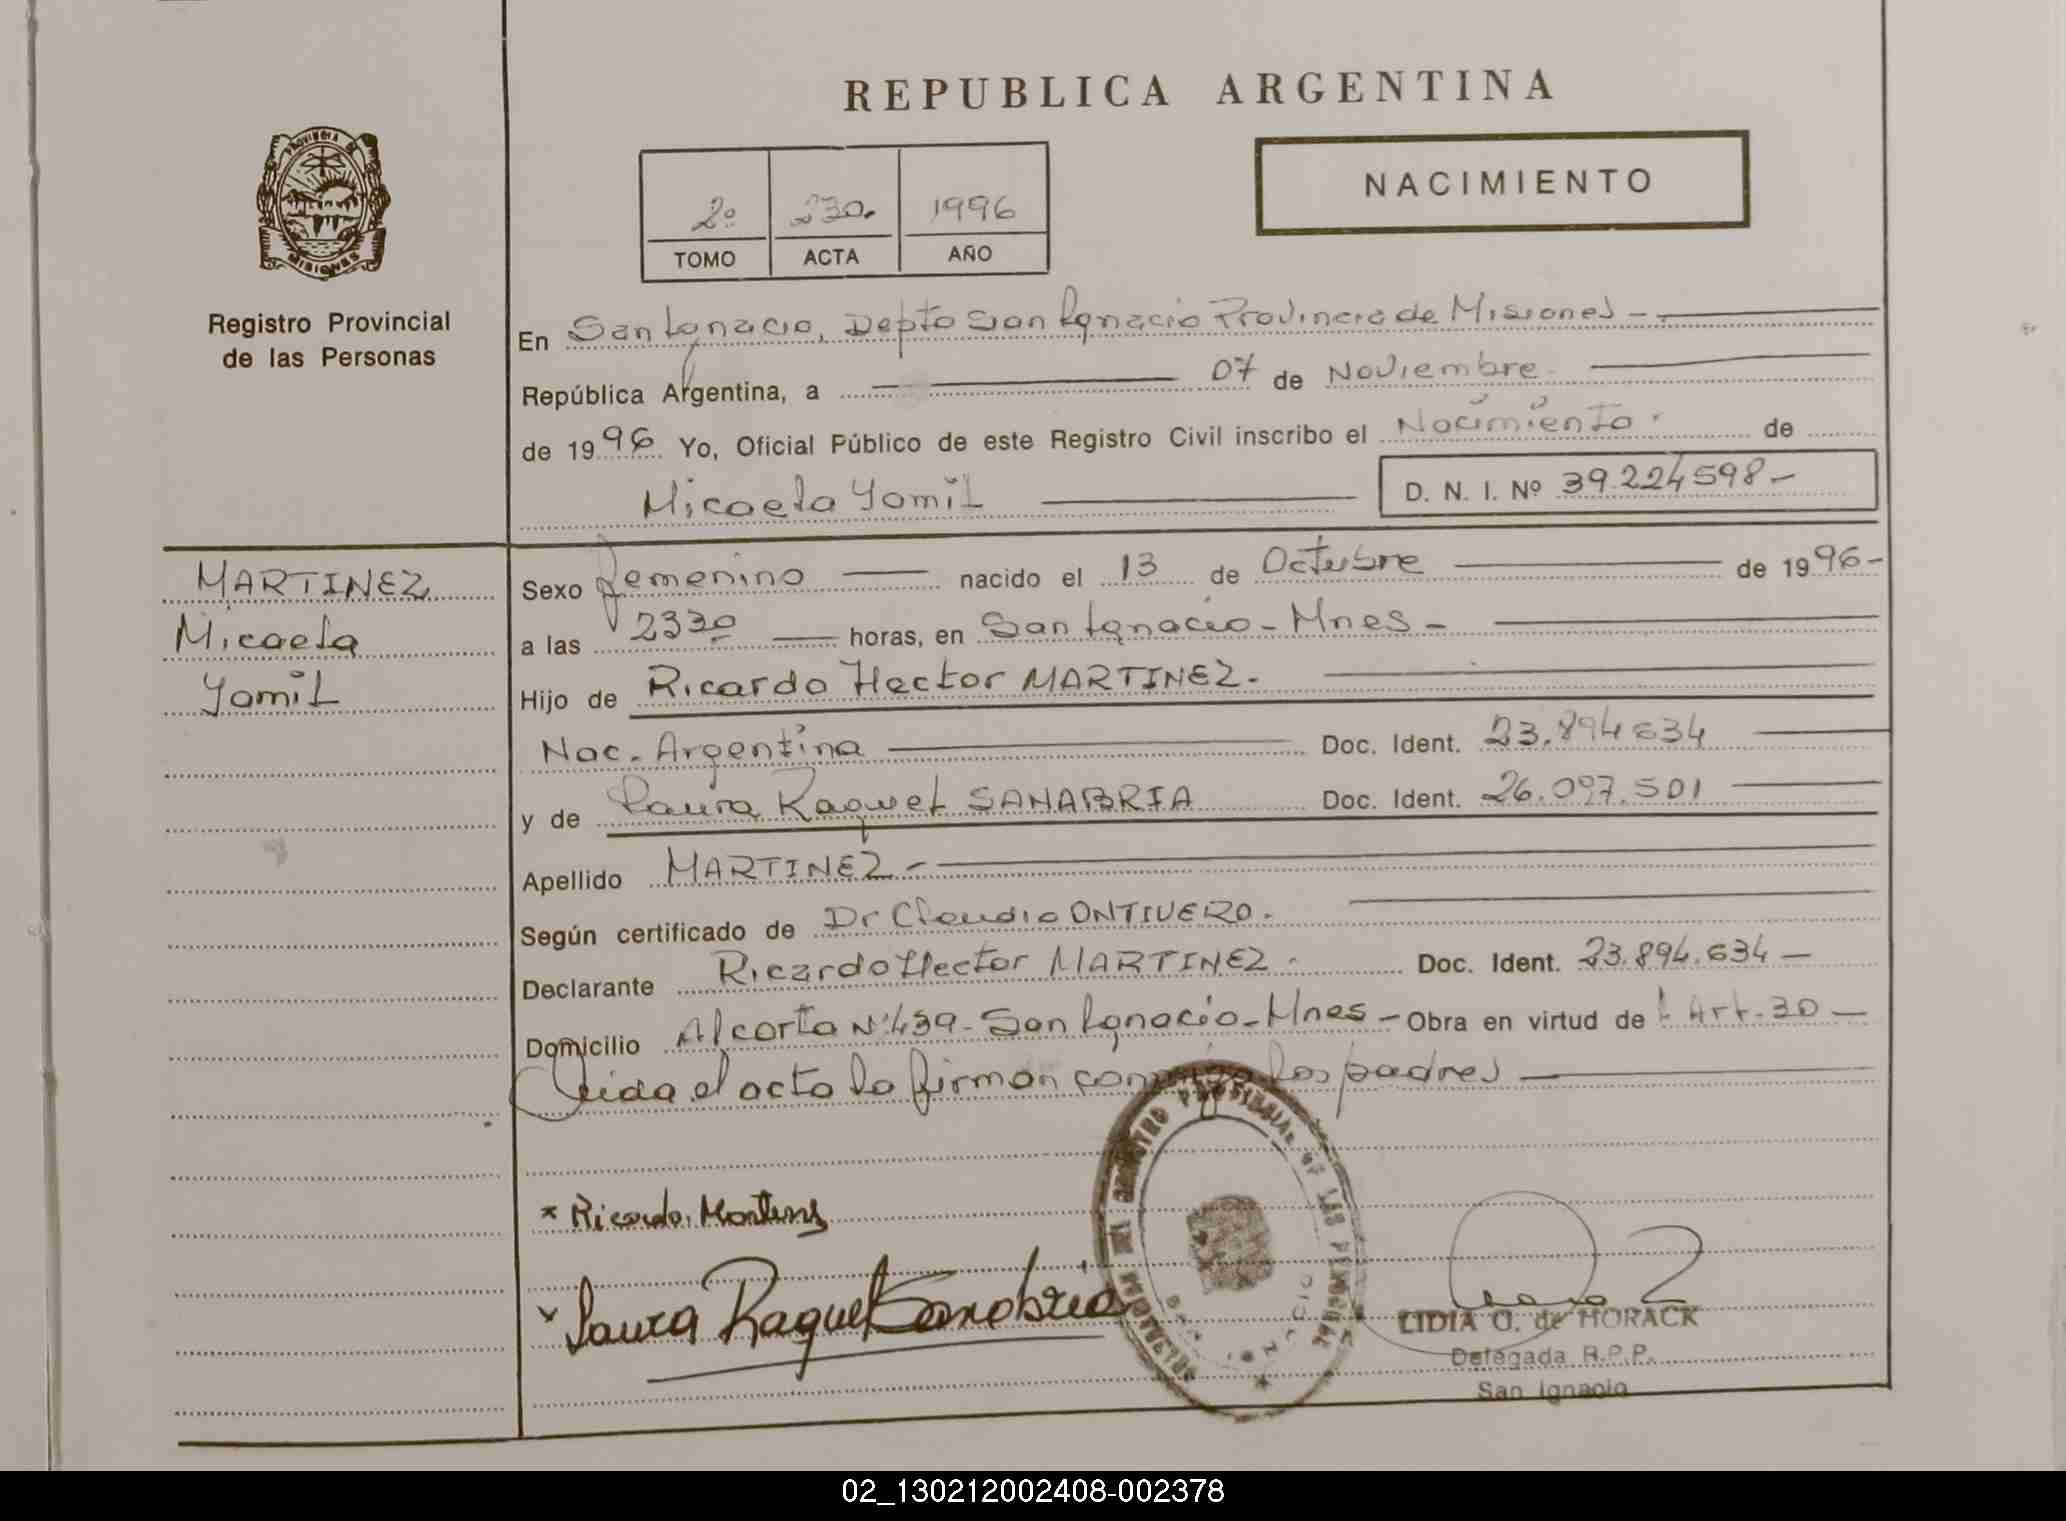 REPUBLICA ARGENTINA
PROVINCIA DE
MISIONES
Registro Provincial
de las Personas
2º 230. 1996
TOMO ACTA AÑO
NACIMIENTO
En San Ignacio, Depto San Ignacio Provincia de Misiones -
República Argentina, a 07 de Noviembre
de 1996 Yo, Oficial Público de este Registro Civil inscribo el Nacimiento. de
Micaela Yamil D. N. I. Nº 39.224598-
MARTINEZ
Micaela
Yamil
Sexo femenino nacido el 13 de Octubre de 1996-
a las 2330 horas, en San Ignacio - Mnes -
Hijo de Ricardo Hector MARTINEZ.
Nac. Argentina Doc. Ident. 23.894634
y de Laura Raquel SANABRIA Doc. Ident. 26.097.501
Apellido MARTINEZ -
Según certificado de Dr Claudio ONTIVERO.
Declarante Ricardo Hector MARTINEZ. Doc. Ident. 23.894.634 -
Domicilio Alcorta Nº 439 - San Ignacio - Mnes - Obra en virtud de Art. 30 -
Leida el acta la firman conmigo los padres
REGISTRO PROVINCIAL DE LAS PERSONAS
* Ricardo. Martinez
x Laura Raquel Sanabria
LIDIA O. de HORACK
Delegada R.P.P.
San Ignacio
02_130212002408-002378